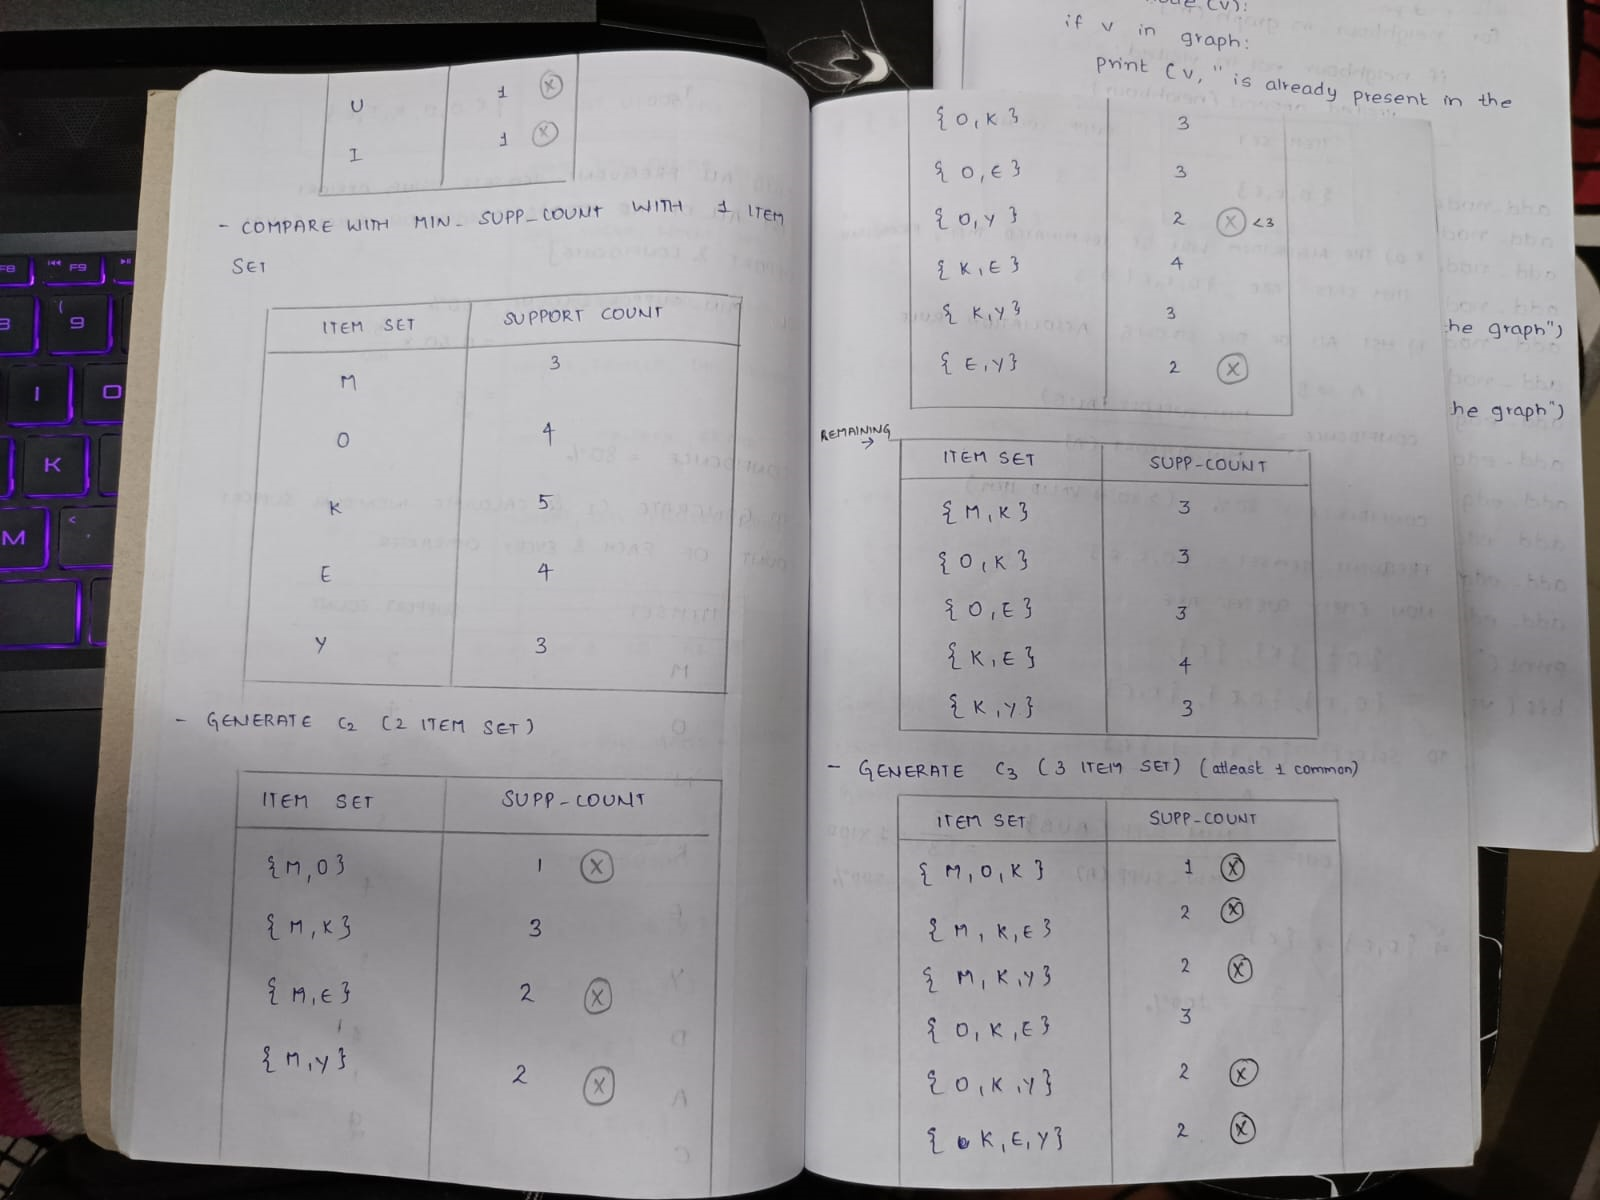 U 1 ⓧ
I 1 ⓧ
- COMPARE WITH MIN- SUPP_COUNT WITH 1 ITEM
SET
ITEM SET SUPPORT COUNT
M 3
O 4
K 5
E 4
Y 3
- GENERATE C2 (2 ITEM SET)
ITEM SET SUPP-COUNT
{M,O} 1 ⓧ
{M,K} 3
{M,E} 2 ⓧ
{M,Y} 2 ⓧ
{O,K} 3
{O,E} 3
{O,Y} 2 ⓧ <3
{K,E} 4
{K,Y} 3
{E,Y} 2 ⓧ
REMAINING →
ITEM SET SUPP-COUNT
{M,K} 3
{O,K} 3
{O,E} 3
{K,E} 4
{K,Y} 3
- GENERATE C3 (3 ITEM SET) (atleast 1 common)
ITEM SET SUPP-COUNT
{M,O,K} 1 ⓧ
{M,K,E} 2 ⓧ
{M,K,Y} 2 ⓧ
{O,K,E} 3
{O,K,Y} 2 ⓧ
{K,E,Y} 2 ⓧ
(v):
if v in graph:
print (v, " is already present in the
he graph")
he graph")
F8
F9
9
I
O
K
M
<